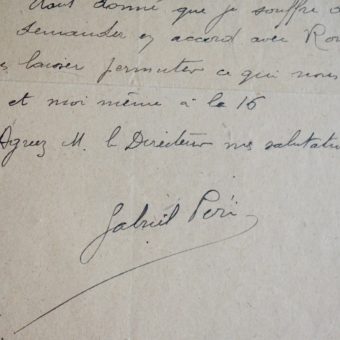 étant donné que je souffre d
demander en accord avec Ro
laisser permuter ce qui nous
et moi même à la 16
Agréez M. le Directeur mes salutati
Gabriel Péri